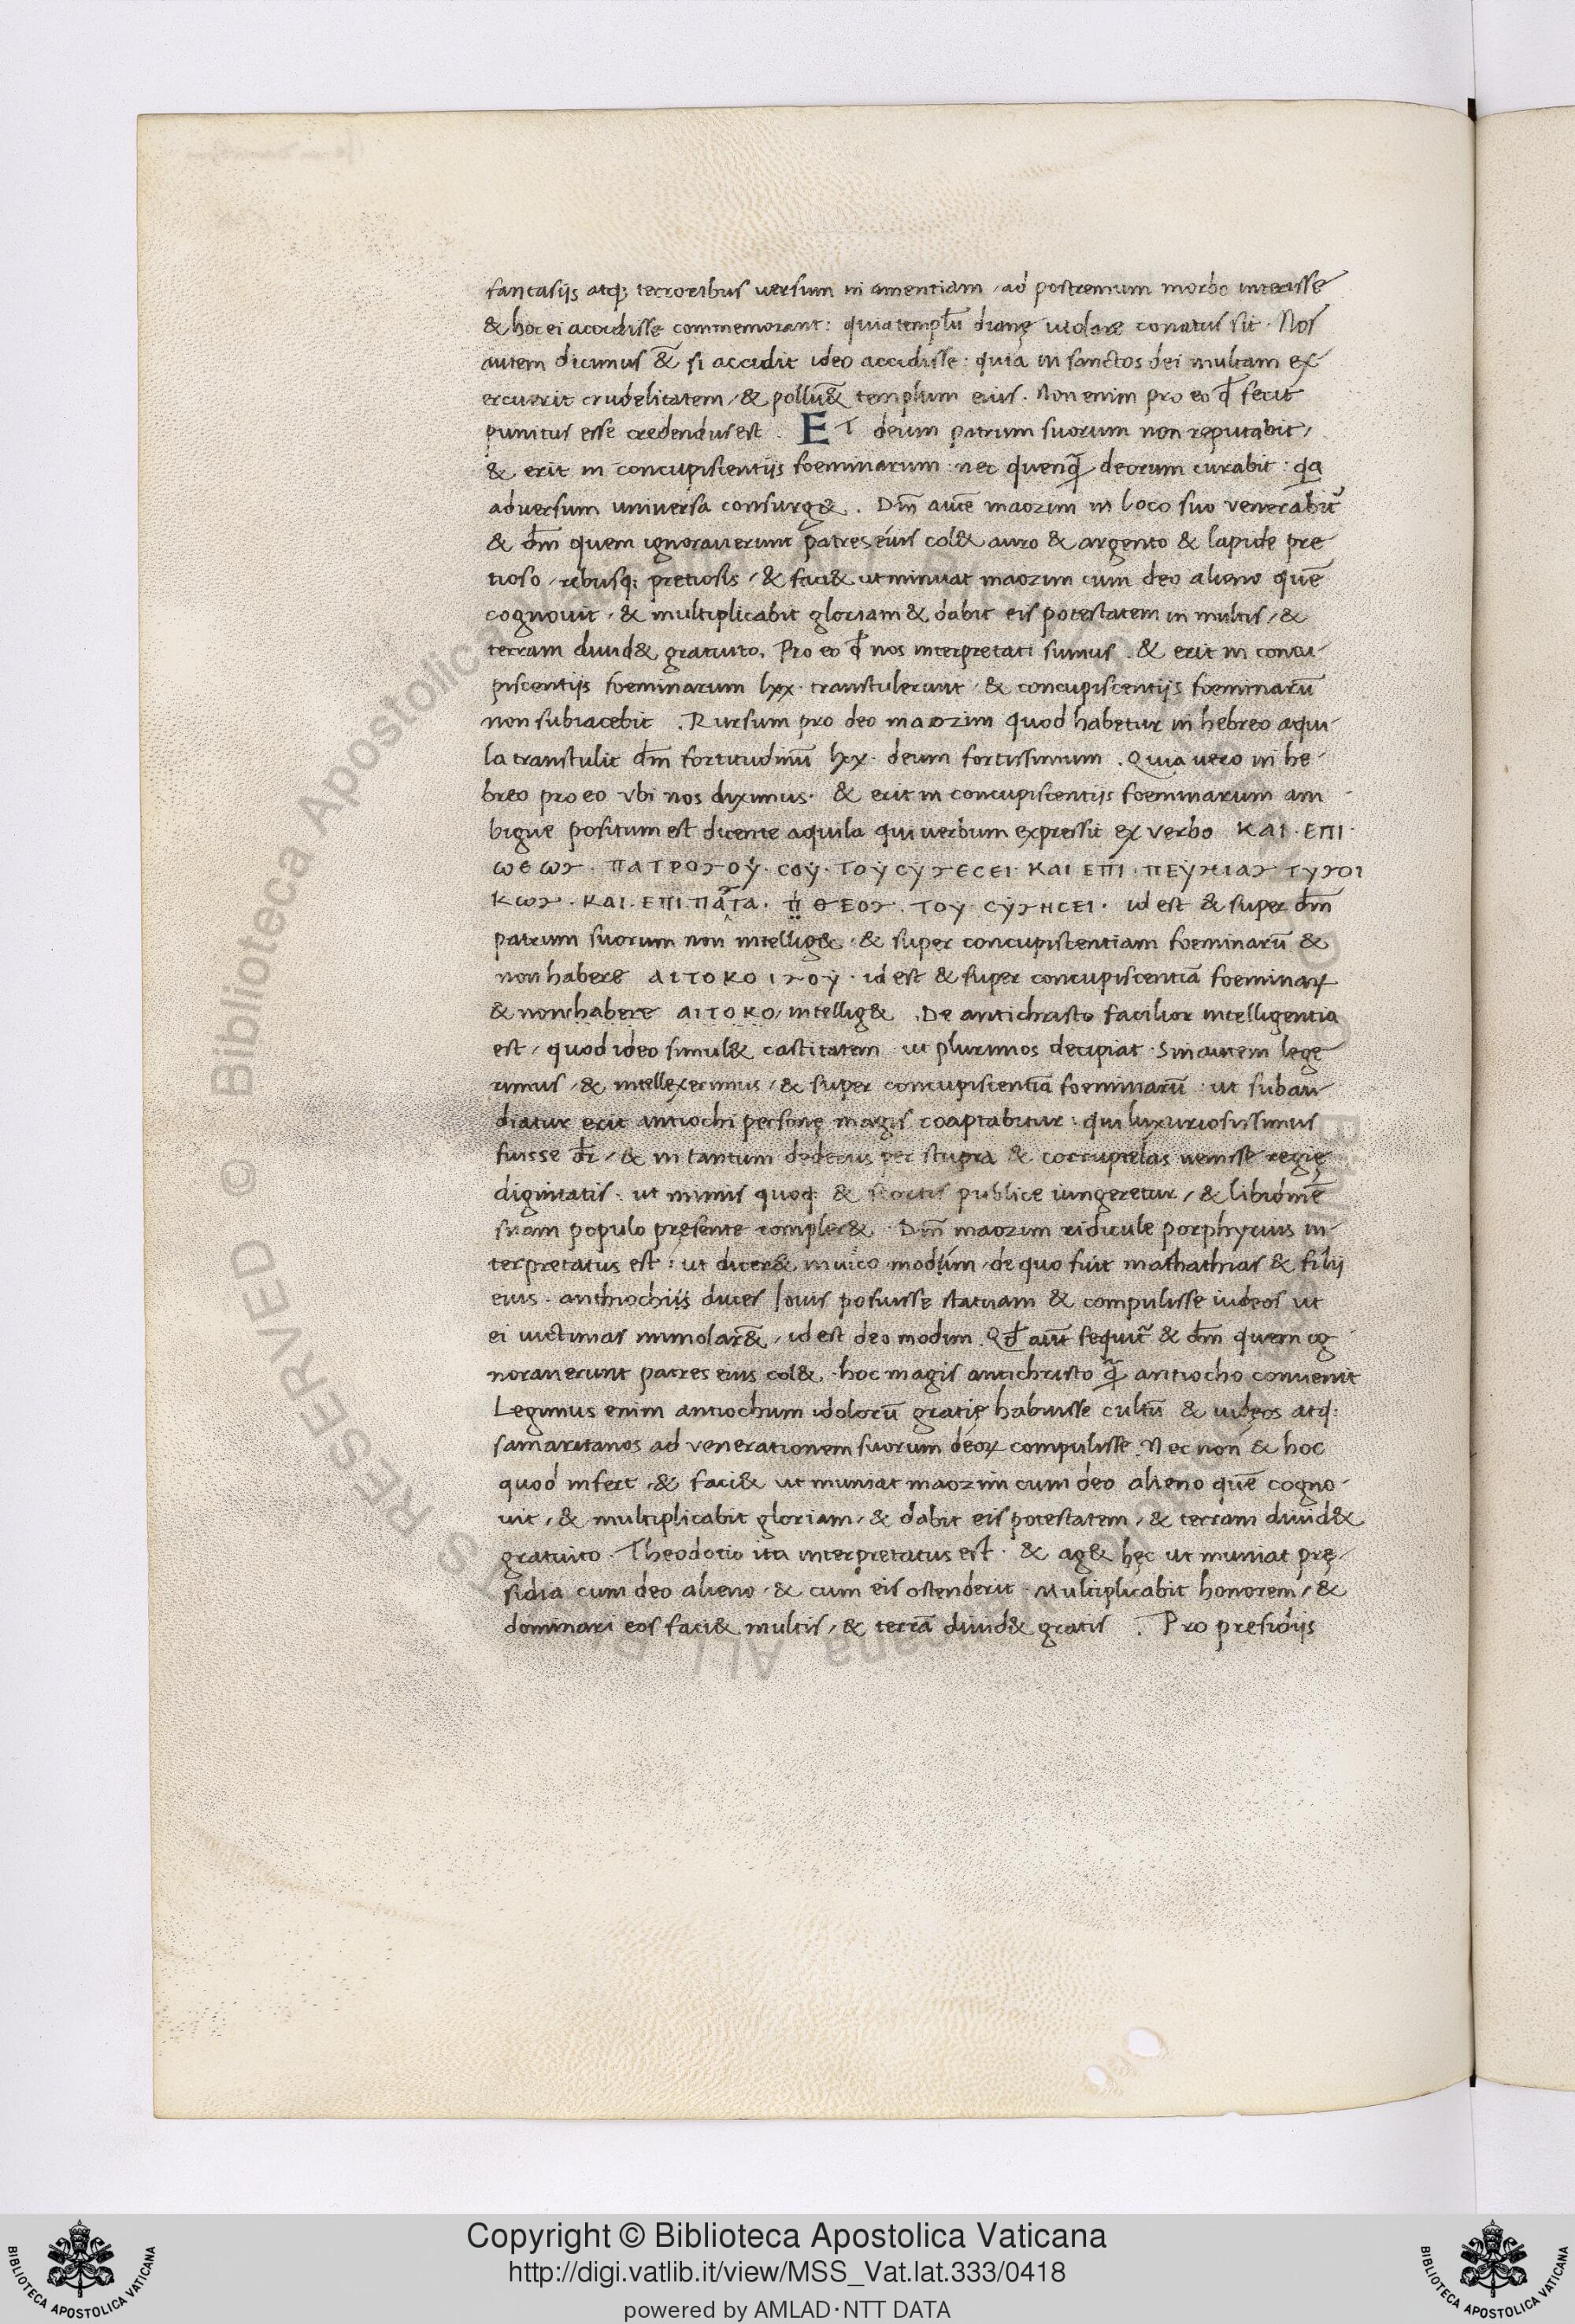 fantasijs atq; terroribus uersum in amentiam / ad postremum morbo interisse
& hoc ei accidisse commemorant: quia templū dianę uiolare conatus sit. Nos
autem dicimus &̄ si accidit ideo accidisse: quia in sanctos dei multam ex-
ercuerit crudelitatem / & pollu&̄ templum eius. Non enim pro eo qđ fecit
punitus esse credendus est. ET deum patrum suorum non reputabit /
& erit in concupiscentijs foeminarum: nec quenq̃ deorum curabit: qa
adversum universa consurg&. Dm̄ autē maozim in loco suo venerabit᷑
& dm̄ quem ignorauerunt patres eius col& auro & argento & lapide pre
tioso / rebusq; pretiosis / & faci& ut muniat maozim cum deo alieno quē
cognouit / & multiplicabit gloriam & dabit eis potestatem in multis / &
terram diuid& gratuito. Pro eo qđ nos interpretati sumus. & erit in concu-
piscentijs foeminarum lxx. transtulerunt / & concupiscentijs foeminarū
non subiacebit. Rursum pro deo maozim quod habetur in hebreo aqui-
la transtulit dm̄ fortitudinū lxx. deum fortissimum. Quia vero in he-
breo pro eo vbi nos diximus. & erit in concupiscentijs foeminarum am-
bigue positum est dicente aquila qui verbum expressit ex verbo ΚΑΙ. ΕΠΙ.
ΚΑΙ ΕΠΙ.
ΚΑΙ. ΕΠΙ id est & super dm̄
patrum suorum non intellig& / & super concupiscentiam foeminarū &
non habere ΑΙΤΟΚΟΙ id est & super concupiscentiā foeminaꝝ
& non habere ΑΙΤΟΚΟ / intellig&. De antichristo facilior intelligentia
est / quod ideo simul& castitatem ut plurimos decipiat. Sin autem lege
rimus / & intellexerimus / & super concupiscentiā foeminarū: ut subau-
diatur erit antiochi personę magis coaptabitur: qui luxuriosissimus
fuisse dr̄ / & in tantum dedecus per stupra & corruptelas uenisse regię
dignitatis: ut mimis quoq; & scortis publice iungeretur / & libidinē
suam populo pręsente compler&. Dm̄ maozim ridicule porphyrius in-
terpretatus est: ut dicer& in uico modim / de quo fuit mathathias & filij
eius. anthiochijs duces Iouis posuisse statuam & compulisse iudeos ut
ei uictimas immolar&̄ / id est deo modim. Qđ aut̄ sequit᷑ & dm̄ quem ig-
norauerunt patres eius col&. hoc magis antichristo q̃ antiocho conuenit
Legimus enim antiochum idolorū gratię habuisse cultū & iudeos atq;
samaritanos ad venerationem suorum deoꝝ compulisse. Nec non & hoc
quod infert / & faci& ut muniat maozim cum deo alieno quē cogno-
uit / & multiplicabit gloriam / & dabit eis potestatem / & terram diuid&
gratuito. Theodotio ita interpretatus est. & ag& hęc ut muniat prę-
sidia cum deo alieno / & cum eis ostenderit. Multiplicabit honorem / &
dominari eos faci& multis / & terrā diuid& gratis. Pro presidijs
Copyright © Biblioteca Apostolica Vaticana
http://digi.vatlib.it/view/MSS_Vat.lat.333/0418
powered by AMLAD·NTT DATA